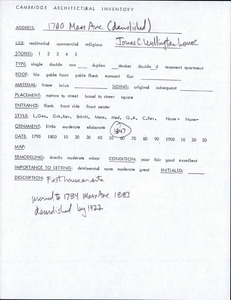 CAMBRIDGE ARCHITECTURAL INVENTORY
ADDRESS: 1780 Mass Ave (demolished)
USE: residential commercial religious Jonas C. Wellington house
STORIES: 1 2 3 4 5
TYPE: single double row duplex decker tenement apartment
ROOF: hip gable front gable flank mansard flat
MATERIAL: frame brick SIDING: original subsequent
PLACEMENT: narrow to street broad to street square
ENTRANCE: flank front side front center
STYLE:
ORNAMENT: little moderate elaborate 1847
DATE: 1790 1800 10 20 30 40 50 60 70 80 90 1900 10 20 30
MAP:
REMODELING: drastic moderate minor CONDITION: poor fair good excellent
IMPORTANCE TO SETTING: detrimental none moderate great INITIALED:
DESCRIPTION: First house on site
moved to 1784 Mass Ave 1883
demolished by 1922